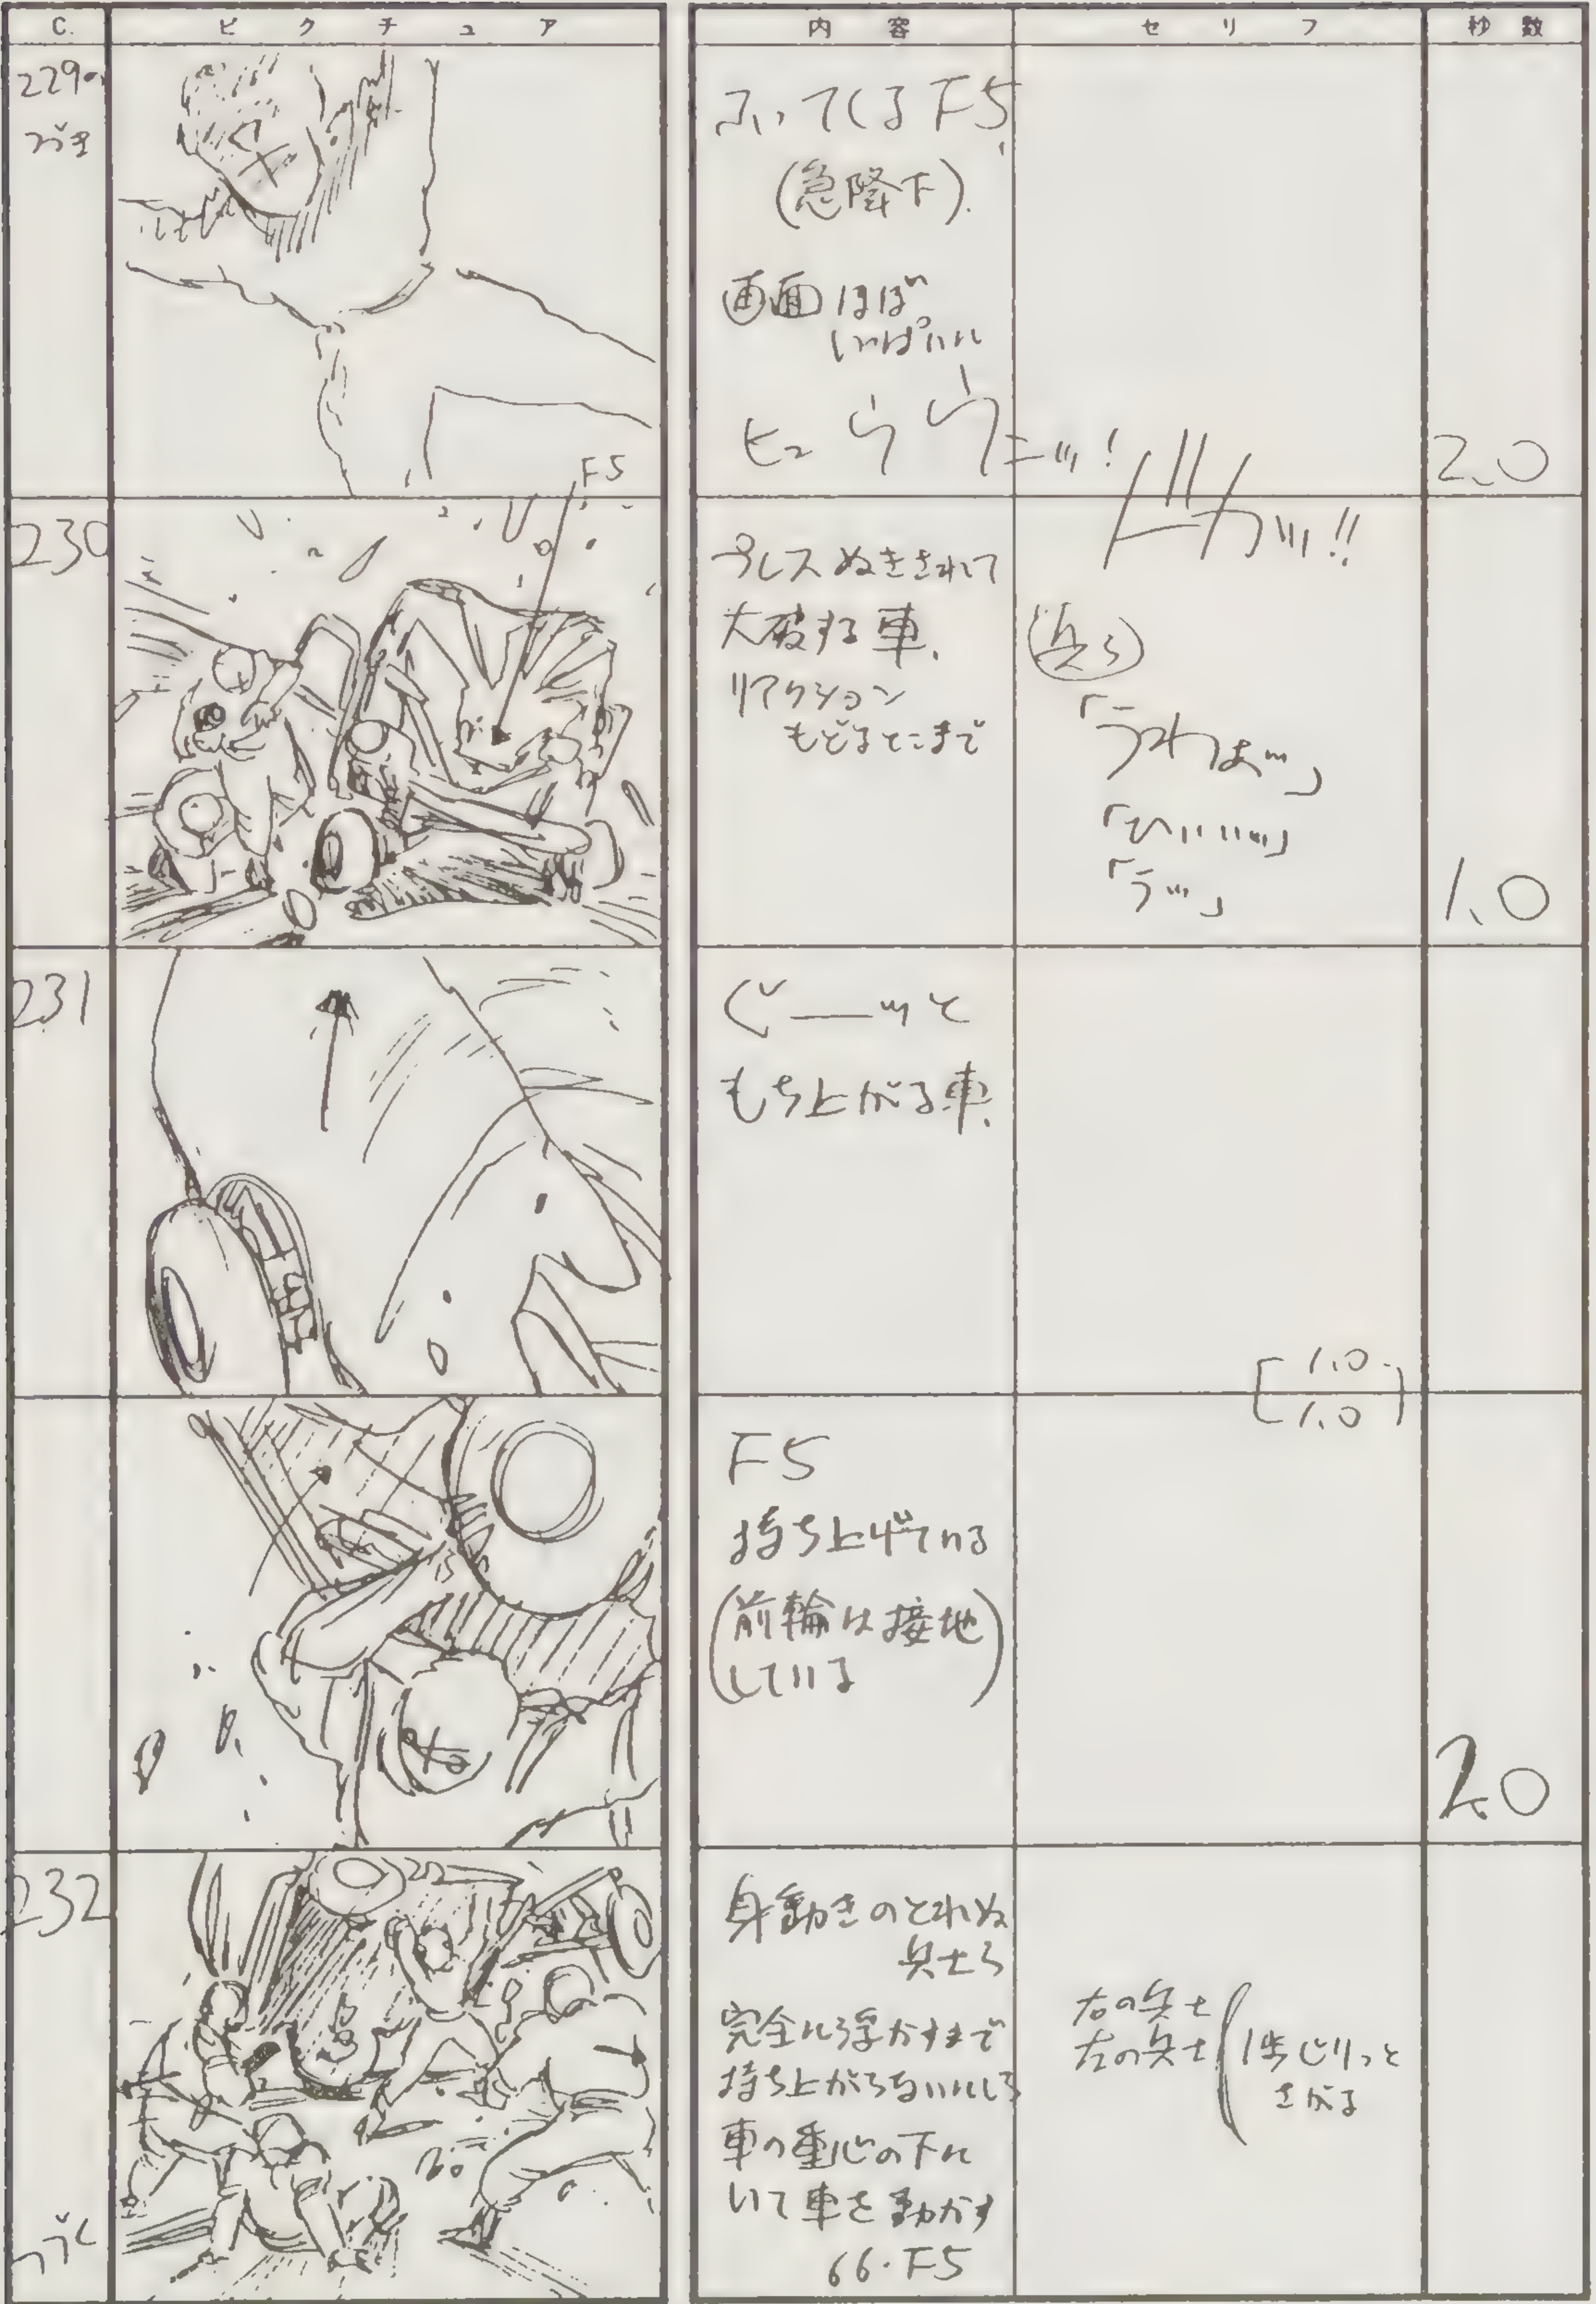 C.
ピクチュア
内容
セリフ
秒数
229の
つづき
ふってくるF5
(急降下).
画面ほぼ
いっぱいに
ヒュウウーッ!
2.0
230
F5
プレスぬきされて
大破する車、
リアクション
もどるとこまで
ドカッ!!
兵ら
「うわぁっ」
「ひいいっ」
「うっ」
1.0
231
ぐーーッと
もち上がる車、
[1.0
1.0]
F5
持ち上げている
(前輪は接地
している)
2.0
232
身動きのとれぬ
兵士ら
完全に浮かすまで
持ち上がらないにしろ
車の重心の下に
いて車を動かす
66・F5
右の兵士
左の兵士
1歩じりっと
さがる
つづく